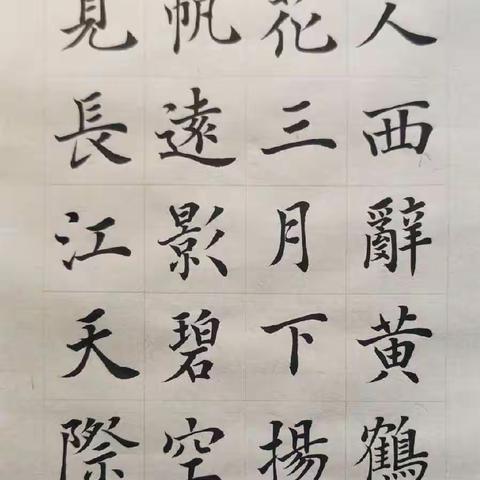 人西辭黄鶴
花三月下揚
帆遠影碧空
見長江天際